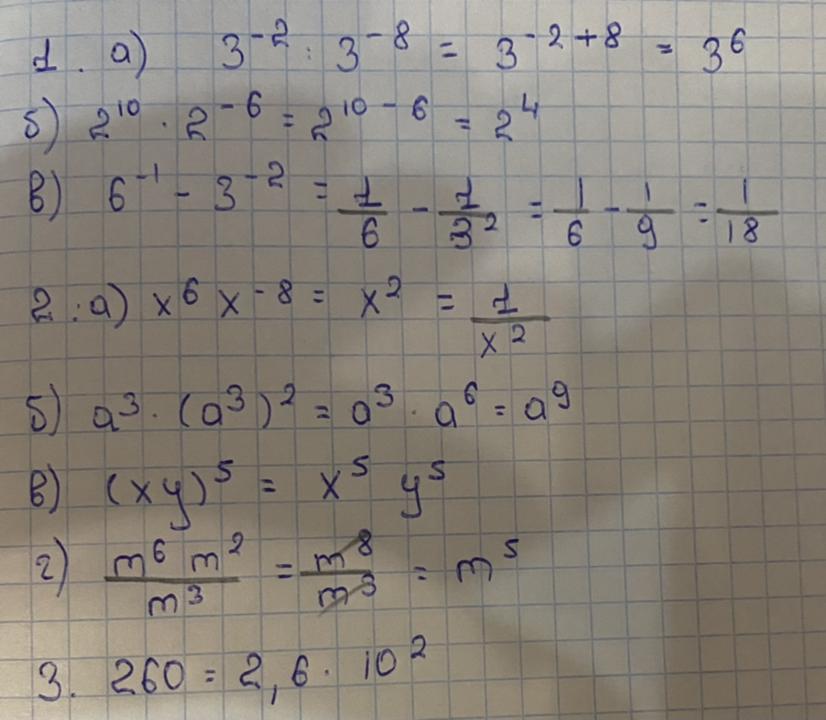 1. а) 3⁻² : 3⁻⁸ = 3⁻²⁺⁸ = 3⁶
б) 2¹⁰ · 2⁻⁶ = 2¹⁰⁻⁶ = 2⁴
в) 6⁻¹ - 3⁻² = 1/6 - 1/3² = 1/6 - 1/9 = 1/18
2. а) x⁶ x⁻⁸ = x² = 1/x²
б) a³ · (a³)² = a³ · a⁶ = a⁹
в) (xy)⁵ = x⁵ y⁵
г) m⁶ m²/m³ = m⁸/m³ = m⁵
3. 260 = 2,6 · 10²